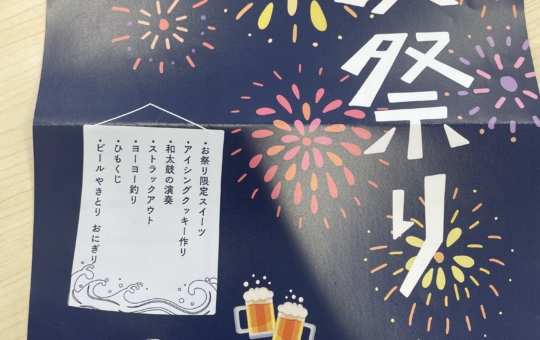 祭り
・お祭り限定スイーツ
・アイシングクッキー作り
・和太鼓の演奏
・ストラックアウト
・ヨーヨー釣り
・ひもくじ
・ビール やきとり おにぎり